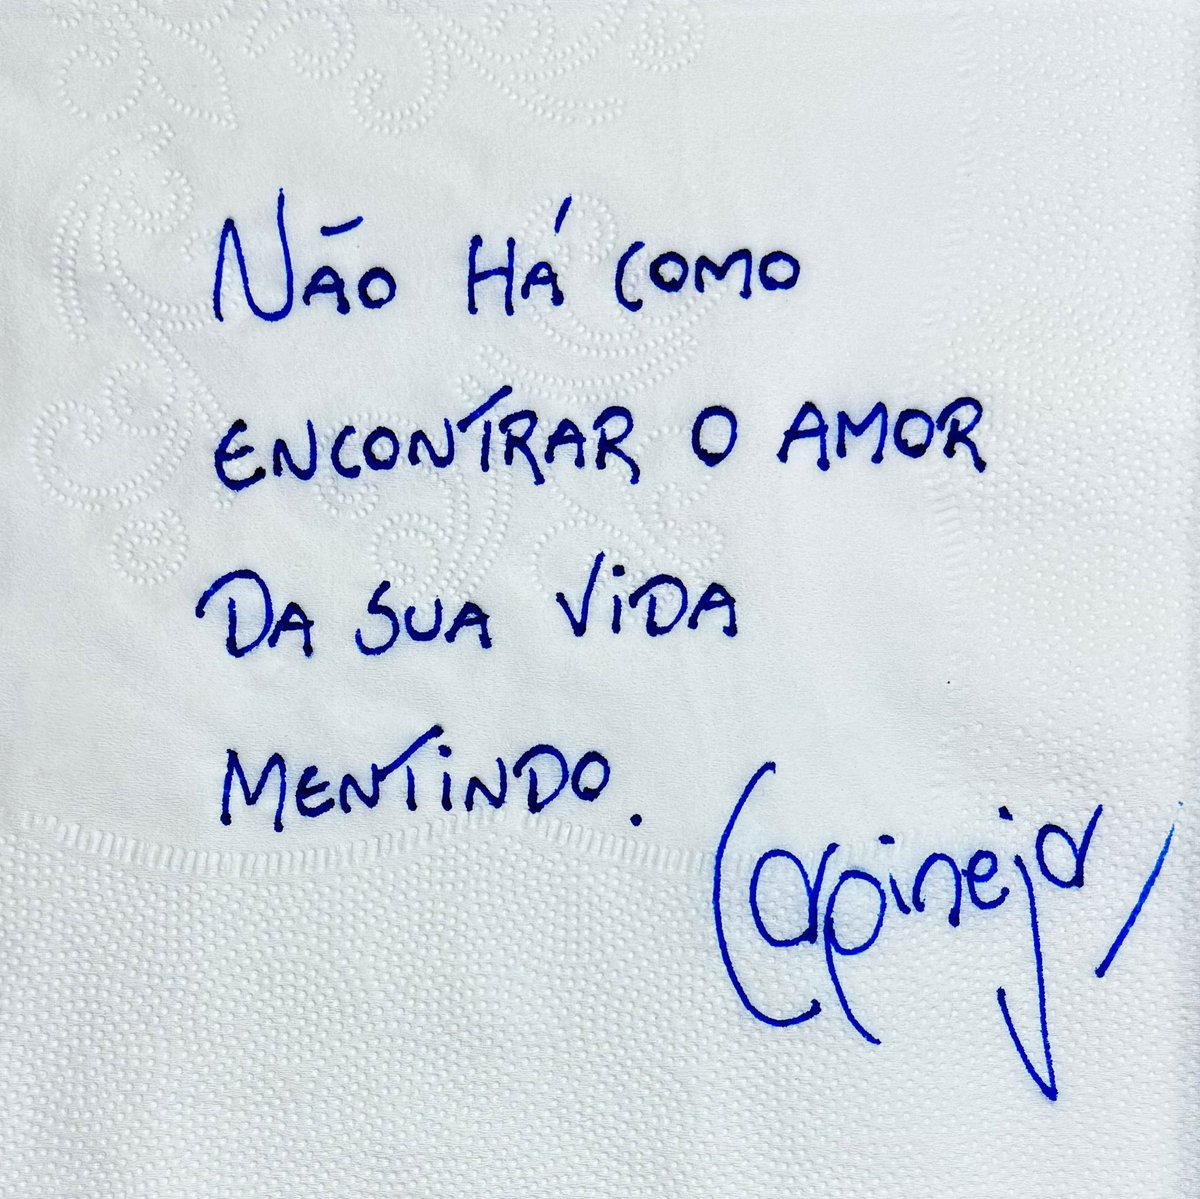 NÃO HÁ COMO
ENCONTRAR O AMOR
DA SUA VIDA
MENTINDO.
Carpinejar